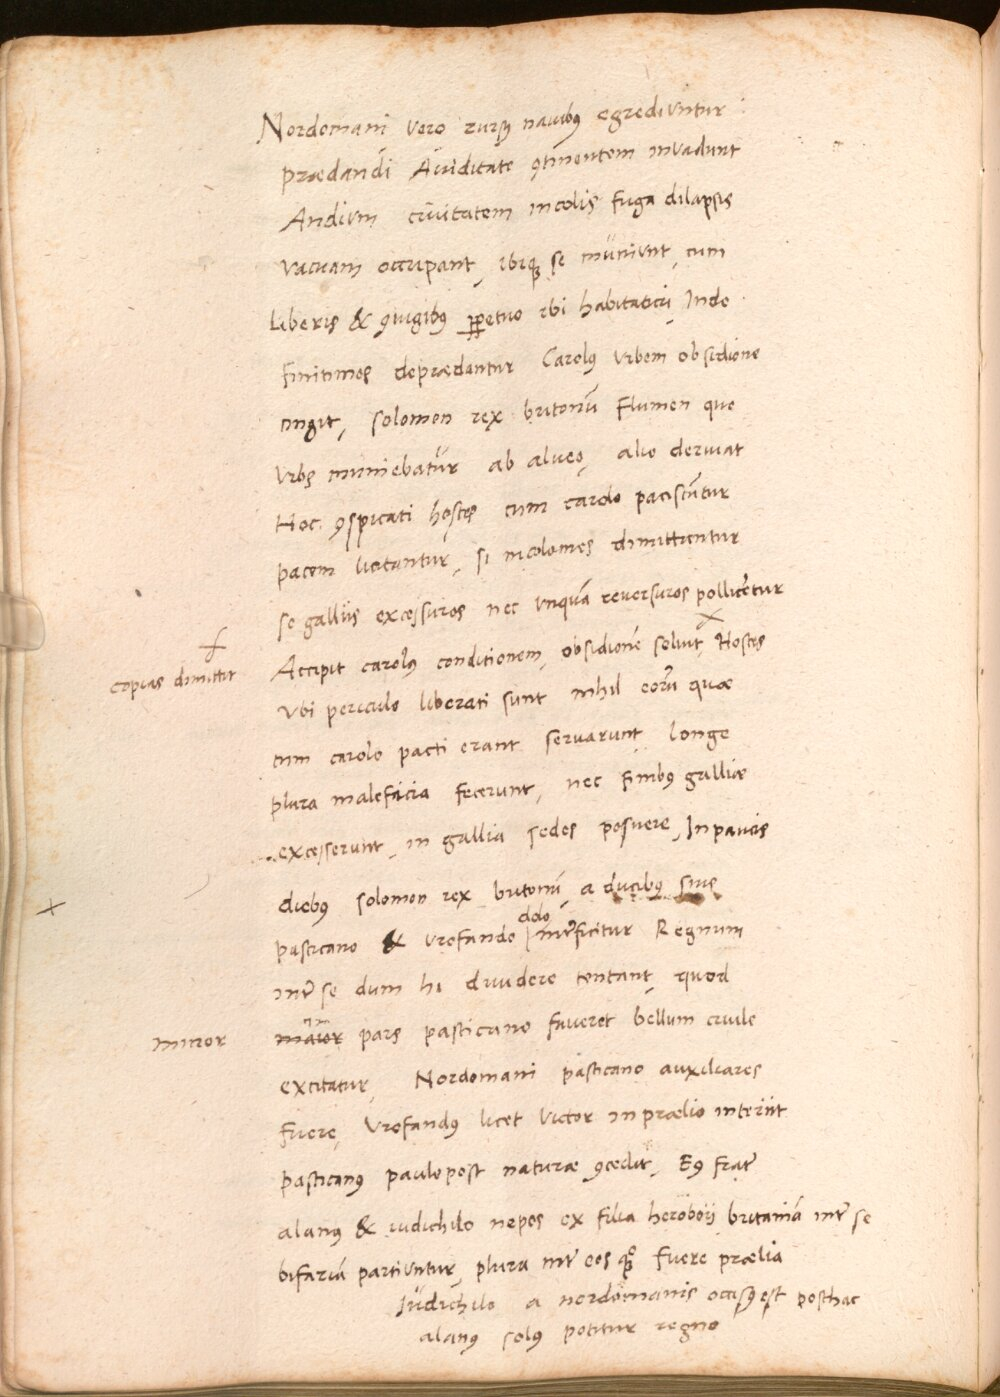 Nordomani vero rursꝰ navibꝰ egrediuntur
prædandi Aviditate ꝯtinentem invadunt
Andium civitatem incolis fuga dilapsis
vacuam occupant, ibiqꝫ se muniunt, cum
Liberis & ꝯiugibꝰ ꝑpetuo ibi habitaturi, Inde
finitimos deprædantur Carolꝰ urbem obsidione
cingit, solomon rex britonū flumen quo
urbs muniebatur ab alveo, alio derivat
Hoc ꝯspicati hostes cum carolo paciscūtur
pacem licitantur, si incolomes dimittuntur
se galliis excessuros nec unquā reversuros pollicētur
Accipit carolꝰ conditionem, obsidionē solvit, Hostes
copias dimittit
ubi periculo liberati sunt nihil eorū quæ
cum carolo pacti erant servarunt longe
plura maleficia fecerunt, nec finibꝰ galliæ
excesserunt, in gallia sedes posuere, In paucis
diebꝰ solomon rex britonū, a ducibꝰ suis
dolo
pasticano & vrofando interficitur Regnum
inter se dum hi dividere tentant, quod
minor maior pars pasticano faveret bellum civile
excitatur, Nordomani pasticano auxiliares
fuere, Vrofandꝰ licet victor in prælio interiit
pasticanꝰ paulopost naturæ ꝯcedit, Eiꝰ frater
alanꝰ & iudichilo nepos ex filia heroboij britaniā inter se
bifariā partiuntur, plura inter eos fuere prælia
Iudichilo a nordomanis occisꝰ est posthac
alanꝰ solꝰ potitur regno